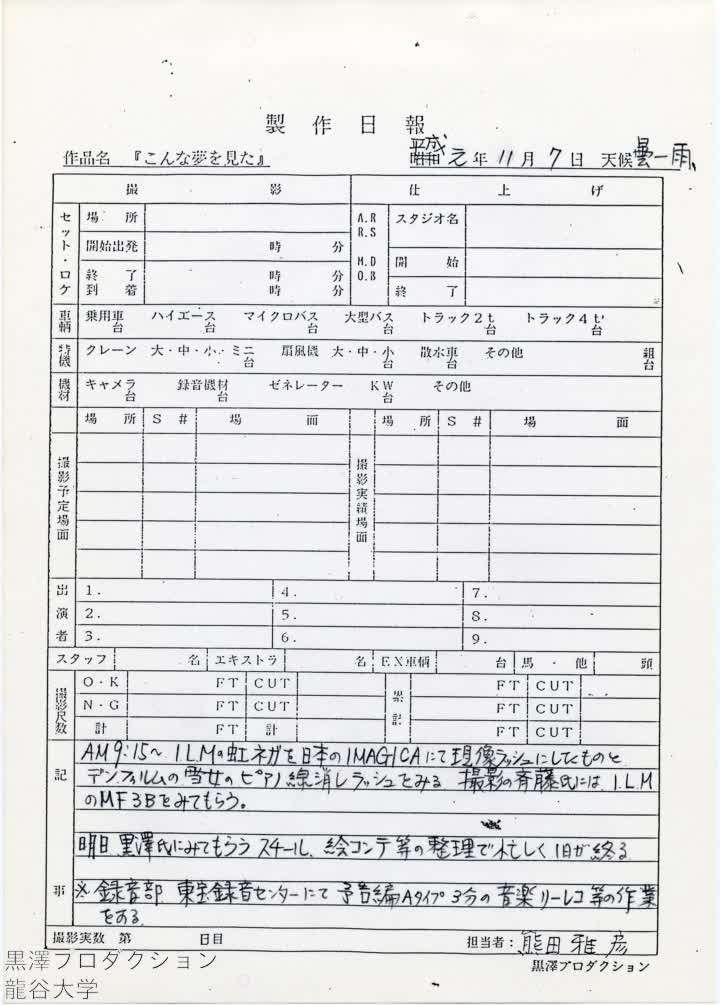 製作日報
作品名 『こんな夢を見た』 昭和 平成 元年 11月 7日 天候 曇一雨、
撮影 仕上げ
セット・ロケ 場所 A.R R.S スタジオ名
開始出発 時 分 M.D O.B 開始
終了 時 分
到着 時 分 終了
車輌 乗用車 台 ハイエース 台 マイクロバス 台 大型バス 台 トラック2t 台 トラック4t 台
特機 クレーン 大・中・小・ミニ 台 扇風機 大・中・小 台 散水車 台 その他 組 台
機材 キャメラ 台 録音機材 台 ゼネレーター KW 台 その他
撮影予定場面 場所 S# 場面 撮影実績場面 場所 S# 場面
出演者 1. 4. 7.
2. 5. 8.
3. 6. 9.
スタッフ 名 エキストラ 名 EX車輌 台 馬・他 頭
撮影尺数 O・K FT CUT 累計 FT CUT
N・G FT CUT FT CUT
計 FT 計 FT CUT
記事
AM9:15〜 I.L.Mの虹ネガを日本のIMAGICAにて現像ラッシュにしたものと
デンフィルムの雪女のピアノ線消しラッシュをみる 撮影の斉藤氏には、I.L.M
のMF3Bをみてもらう。
明日、黒澤氏にみてもらう スチール、絵コンテ等の整理で忙しく1日が終る
※録音部 東宝録音センターにて 予告編Aタイプ3分の音楽リーレコ等の作業
をある
撮影実数 第 日目 担当者: 熊田雅彦
黒澤プロダクション
黒澤プロダクション
龍谷大学